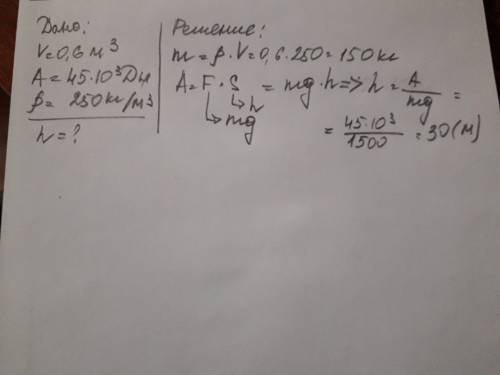 Дано:
V=0,6м³
A=45·10³Дж
ρ= 250кг/м³
h=?
Решение:
m=ρ·V=0,6·250=150кг
A=F·S = mg·h=>h=A/mg=
↳h
↳mg
=45·10³/1500=30(м)